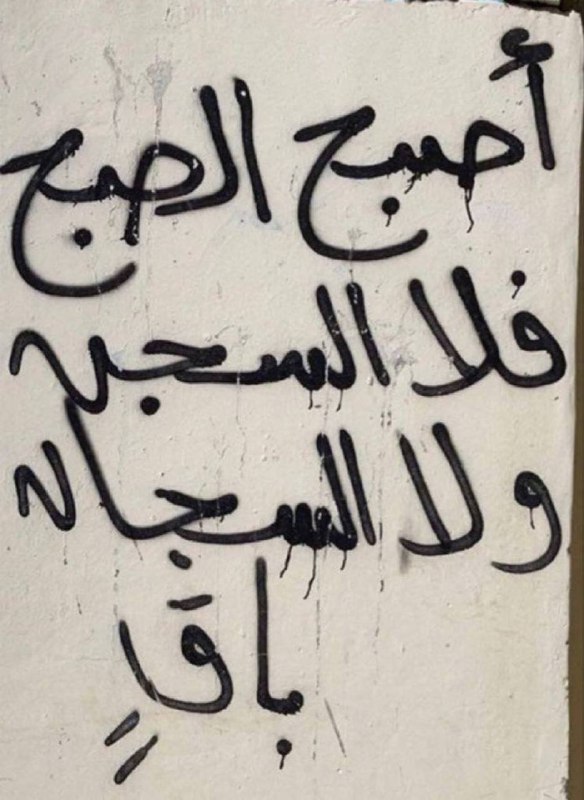 أصبح الصبح
فلا السجن
ولا السجان
باقٍ